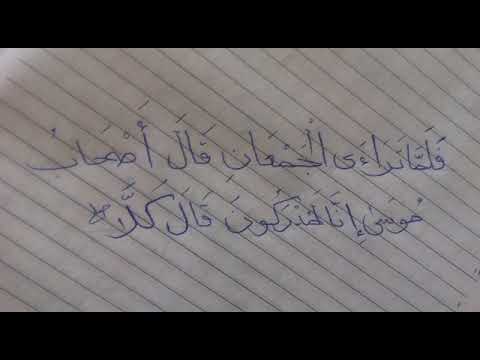 فَلَمَّا تَرَاءَى الْجَمْعَانِ قَالَ أَصْحَابُ
مُوسَىٰ إِنَّا لَمُدْرَكُونَ قَالَ كَلَّا ۖ